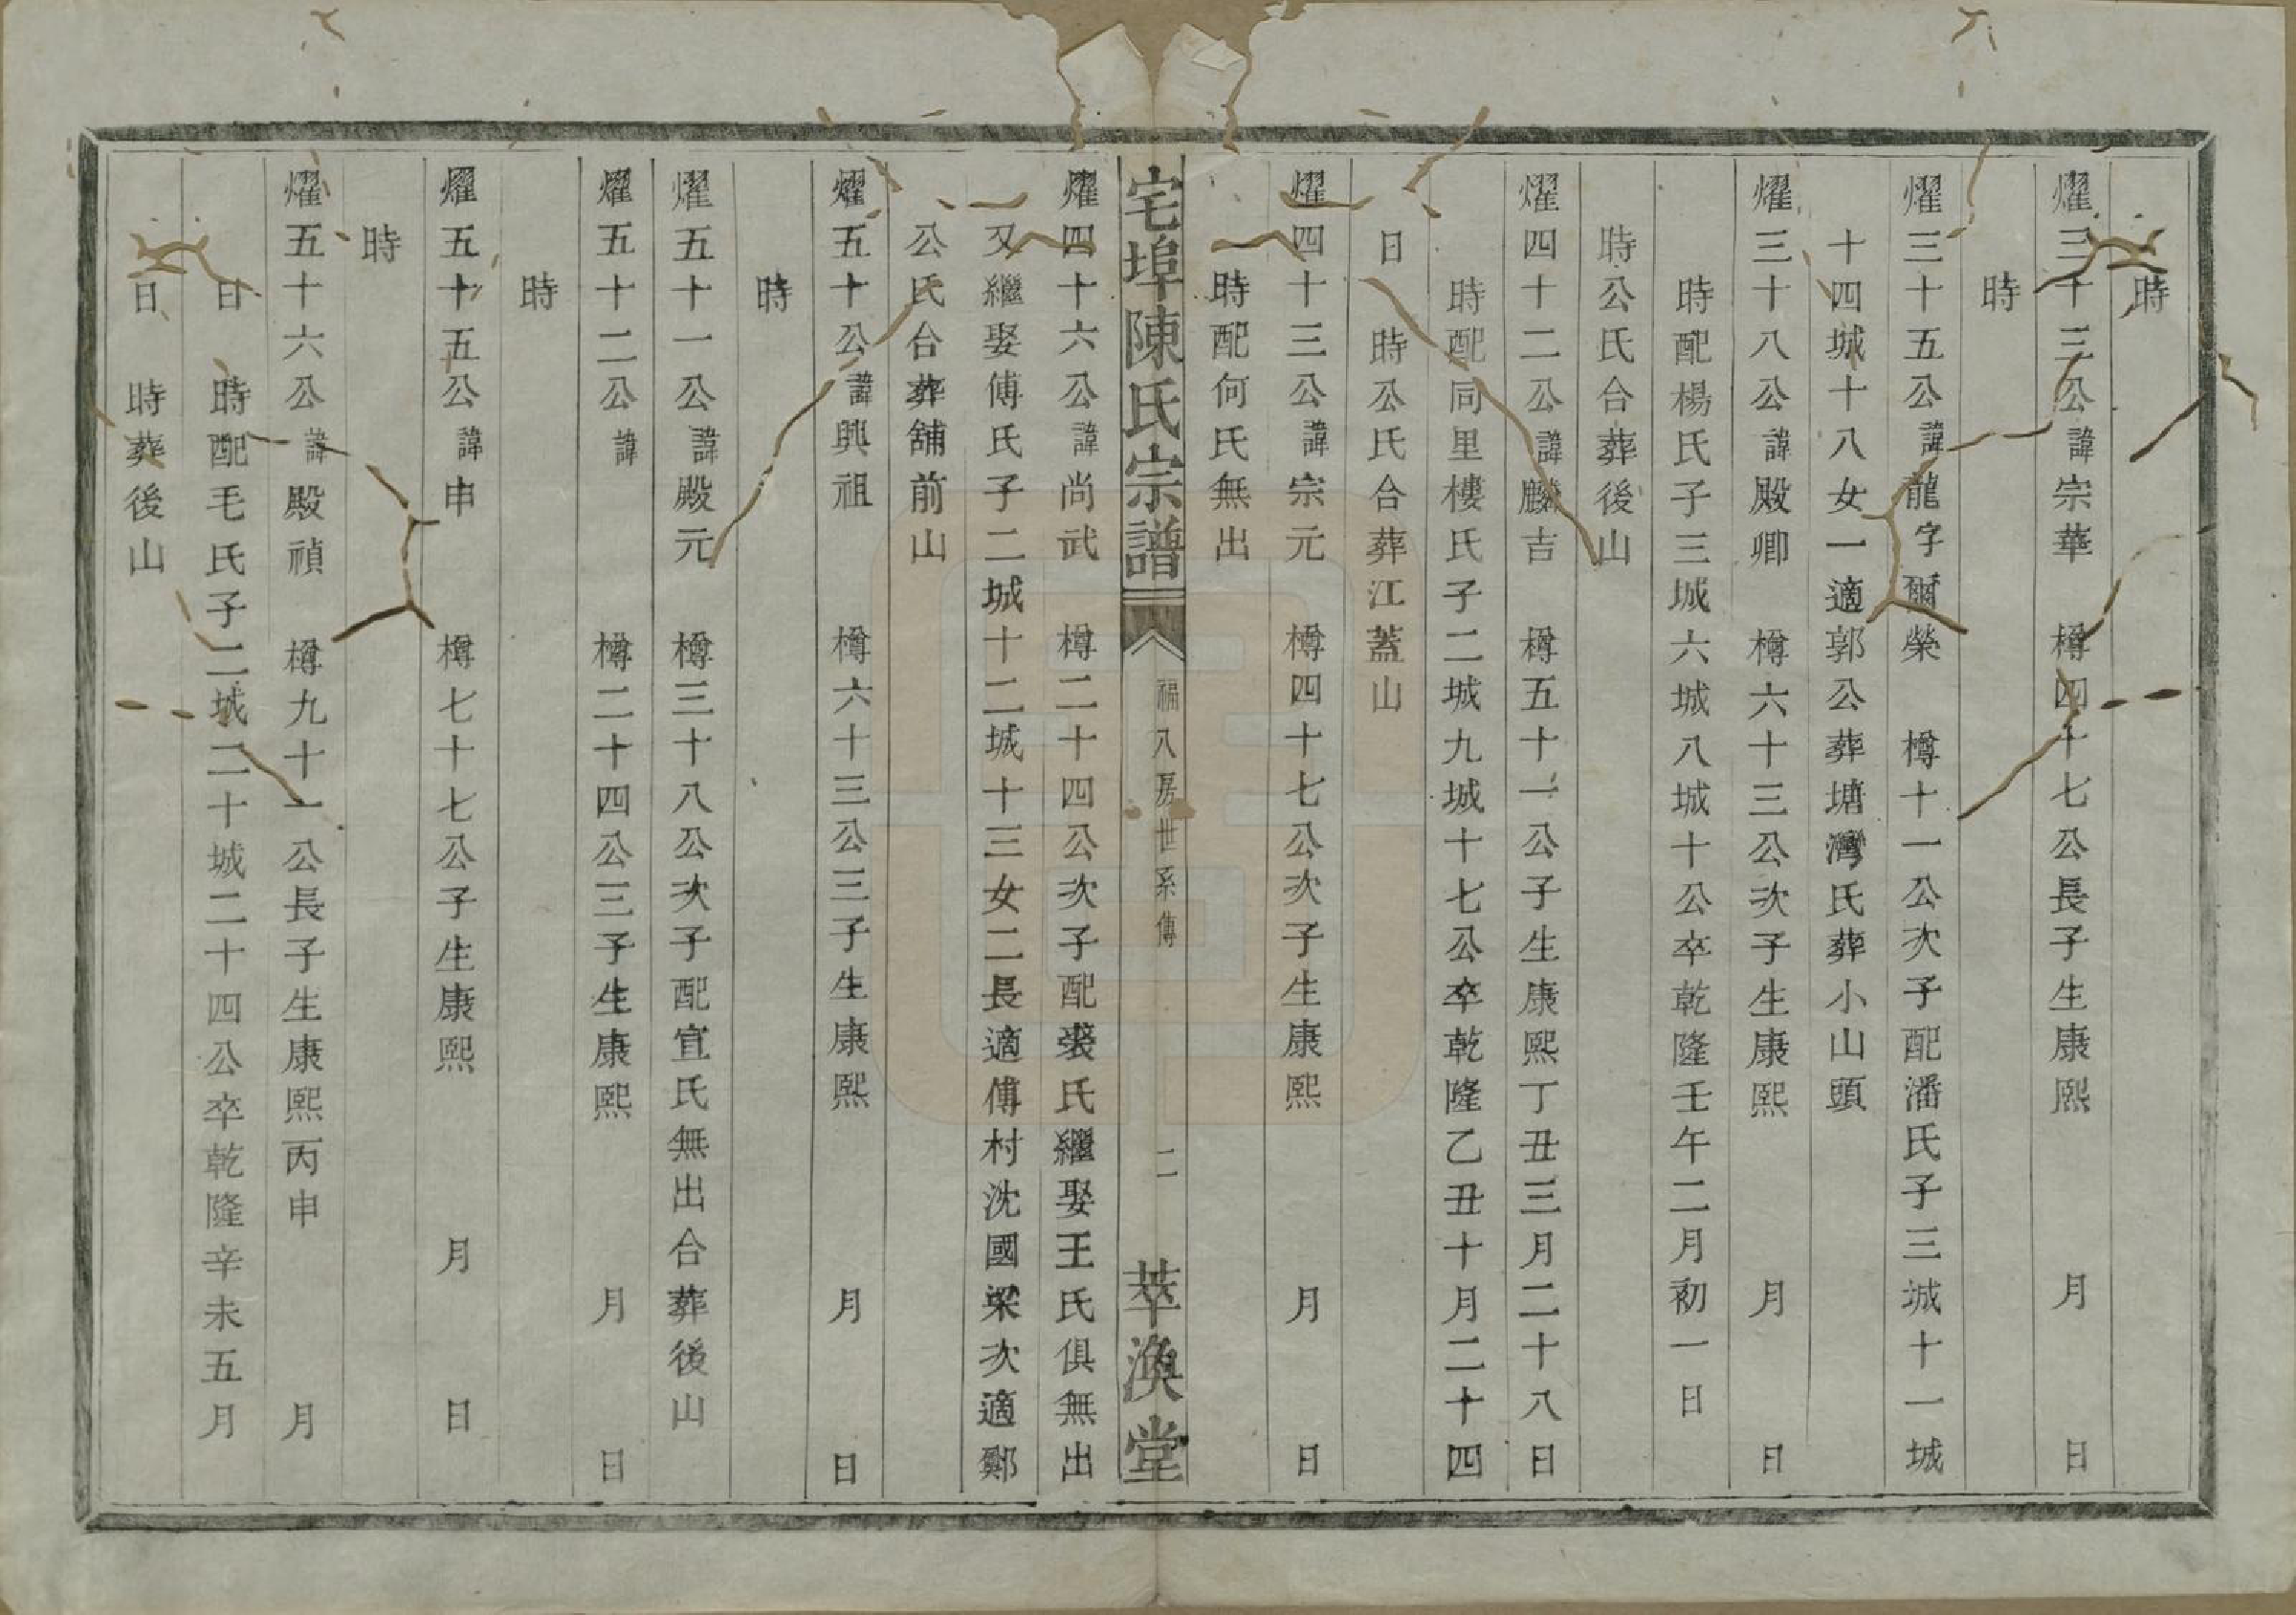 時
燿三十三公諱宗華　樽四十七公長子生康熙　月　日
時
燿三十五公諱龍字爾榮　樽十一公次子配潘氏子三城十一城
十四城十八女一適郭公葬塘灣氏葬小山頭
燿三十八公諱殿卿　樽六十三公次子生康熙　月　日
時配楊氏子三城六城八城十公卒乾隆壬午二月初一日
時公氏合葬後山
燿四十二公諱麟吉　樽五十一公子生康熙丁丑三月二十八日
時配同里樓氏子二城九城十七公卒乾隆乙丑十月二十四
日　時公氏合葬江蓋山
燿四十三公諱宗元　樽四十七公次子生康熙　月　日
時配何氏無出
宅埠陳氏宗譜　福八房世系傳　二　萃渙堂
燿四十六公諱尚武　樽二十四公次子配裘氏繼娶王氏俱無出
又繼娶傅氏子二城十二城十三女二長適傅村沈國梁次適鄭
公氏合葬舖前山
燿五十公諱興祖　樽六十三公三子生康熙　月　日
時
燿五十一公諱殿元　樽三十八公次子配宜氏無出合葬後山
燿五十二公諱　樽二十四公三子生康熙　月　日
時
燿五十五公諱申　樽七十七公子生康熙　月　日
時
燿五十六公諱殿禎　樽九十一公長子生康熙丙申　月
日　時配毛氏子二城二十城二十四公卒乾隆辛未五月
日　時葬後山